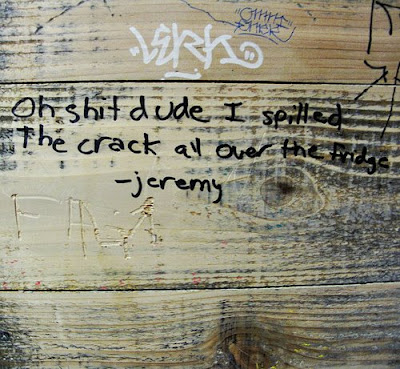 Oh shit dude I spilled
The crack all over the fridge
-jeremy